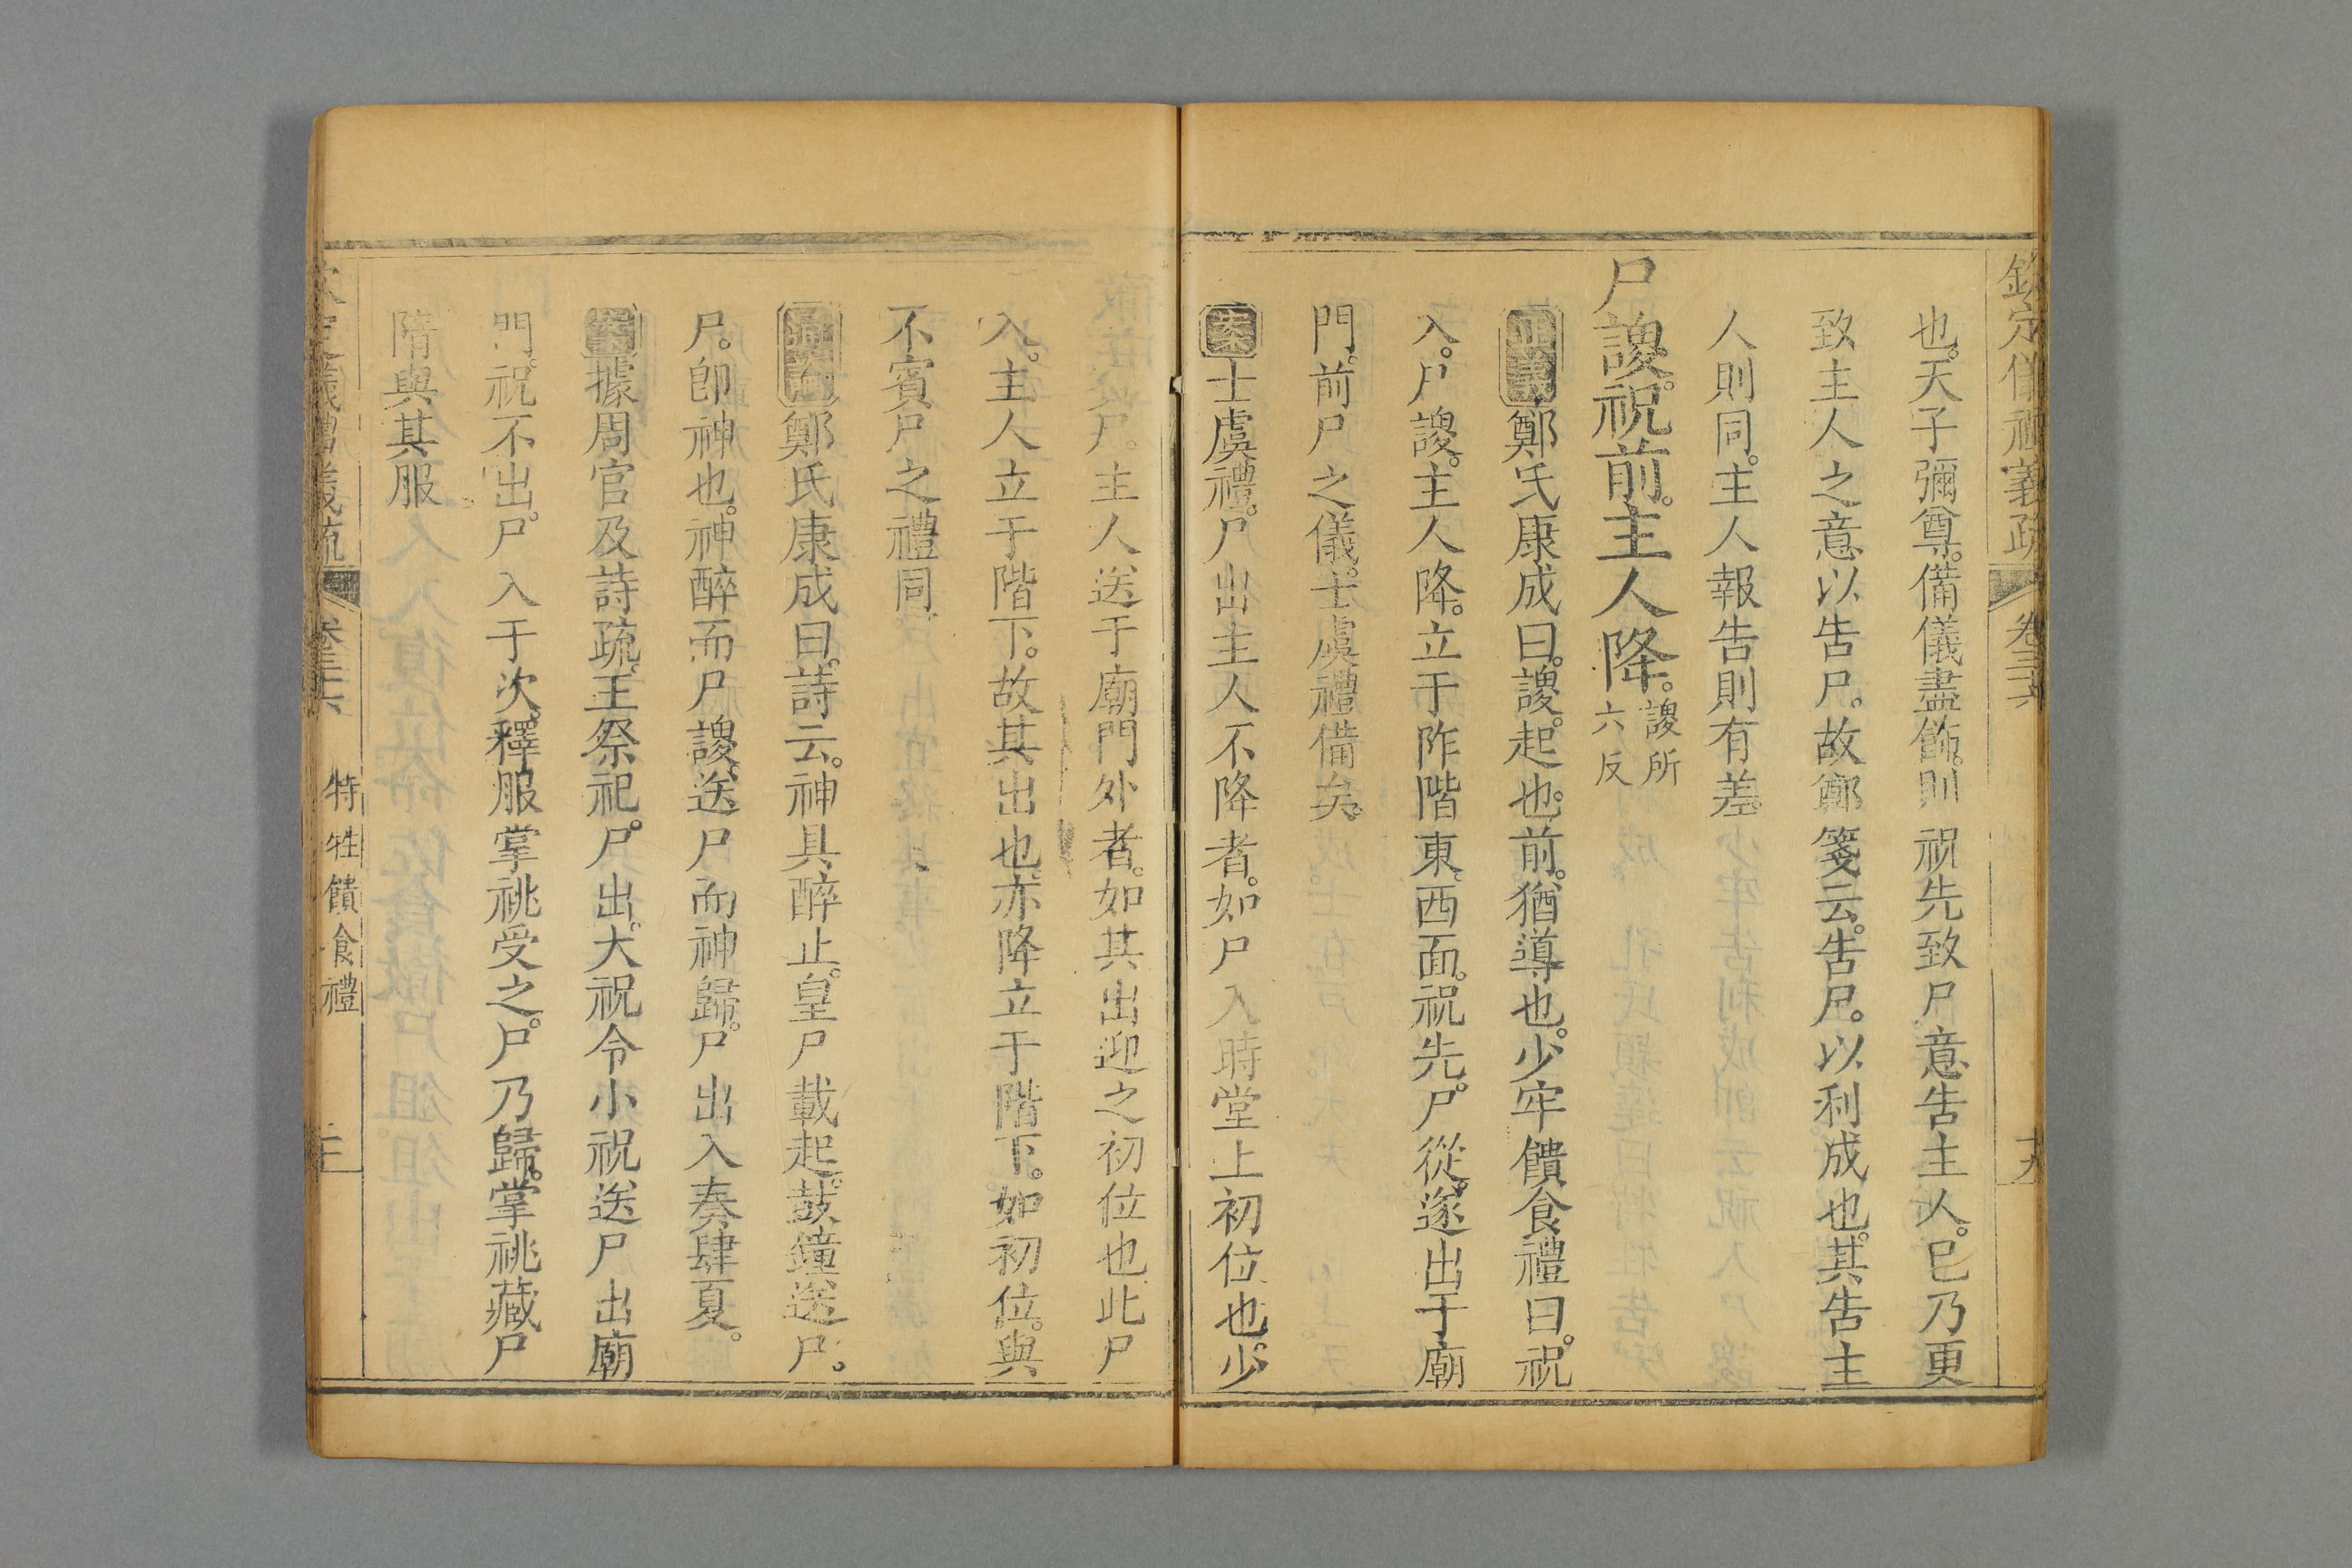 欽定儀禮義疏 卷三十六
也。天子彌尊。備儀盡飾。則祝先致尸意告主人。已乃更
致主人之意以告尸。故鄭箋云。告尸。以利成也。其告主
人則同。主人報告則有差。
尸謖。祝前。主人降。謖所六反
正義鄭氏康成曰。謖。起也。前。猶導也。少牢饋食禮曰。祝
入。尸謖。主人降。立于阼階東。西面。祝先。尸從。遂出于廟
門。前尸之儀。士虞禮備矣。
案士虞禮。尸出主人不降者。如尸入時堂上初位也。少
尸。主人送于廟門外者。如其出迎之初位也此尸
入。主人立于階下。故其出也。亦降立于階下。如初位。與
不賓尸之禮同
通論鄭氏康成曰。詩云。神具醉止。皇尸載起。鼓鐘送尸。
尸。卽神也。神醉而尸謖。送尸而神歸。尸出入奏肆夏。
案據周官及詩疏。王祭祀。尸出。大祝令小祝送尸出廟
門。祝不出。尸入于次。釋服掌祧受之。尸乃歸。掌祧藏尸
隋與其服
欽定儀禮義疏 卷三十六 特牲饋食禮